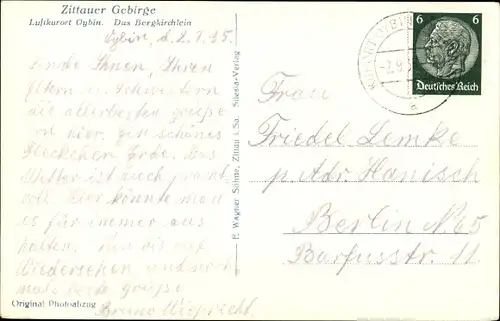 Zittauer Gebirge
Luftkurort Oybin. Das Bergkirchlein
Oybin, d. 2.9.35.
Sende Ihnen, Ihren
Eltern u. Schwestern
die allerbesten Grüße
von hier, ein schönes
Fleckchen Erde. Das
Wetter ist auch pracht
voll. Hier könnte man
es für immer aus
halten. Nun bis auf
Wiedersehen und noch
mals beste Grüße
Bruno
Original Photoabzug
E. Wagner Söhne, Zittau i. Sa.
6 6
Deutsches Reich
Frau
Friedel Lemke
p Adr. Hanisch
Berlin N. 65
Barfusstr. 11